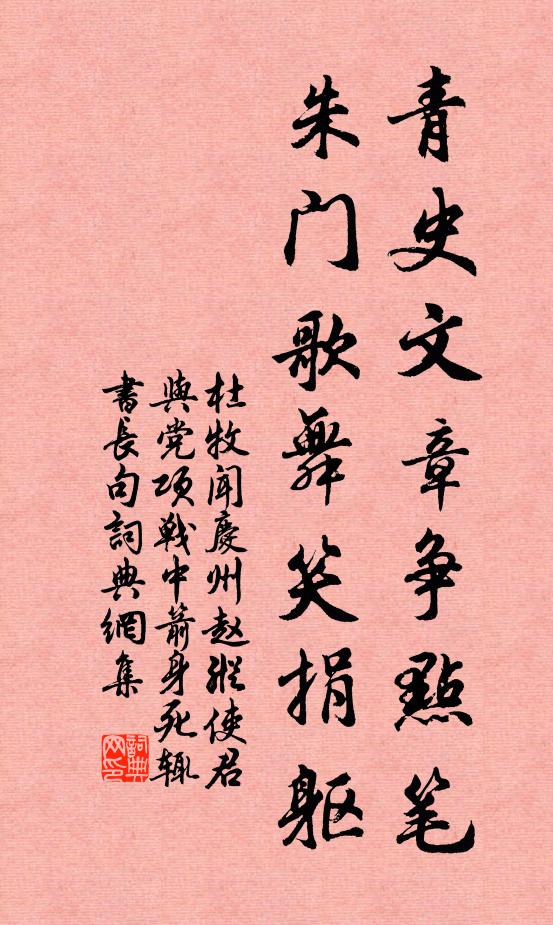 青史文章争點笔
朱门歌舞笑捐躯
杜牧闻慶州赵縱使君
與党项戰中箭身死辄
書長句詞典網集
詞典网印